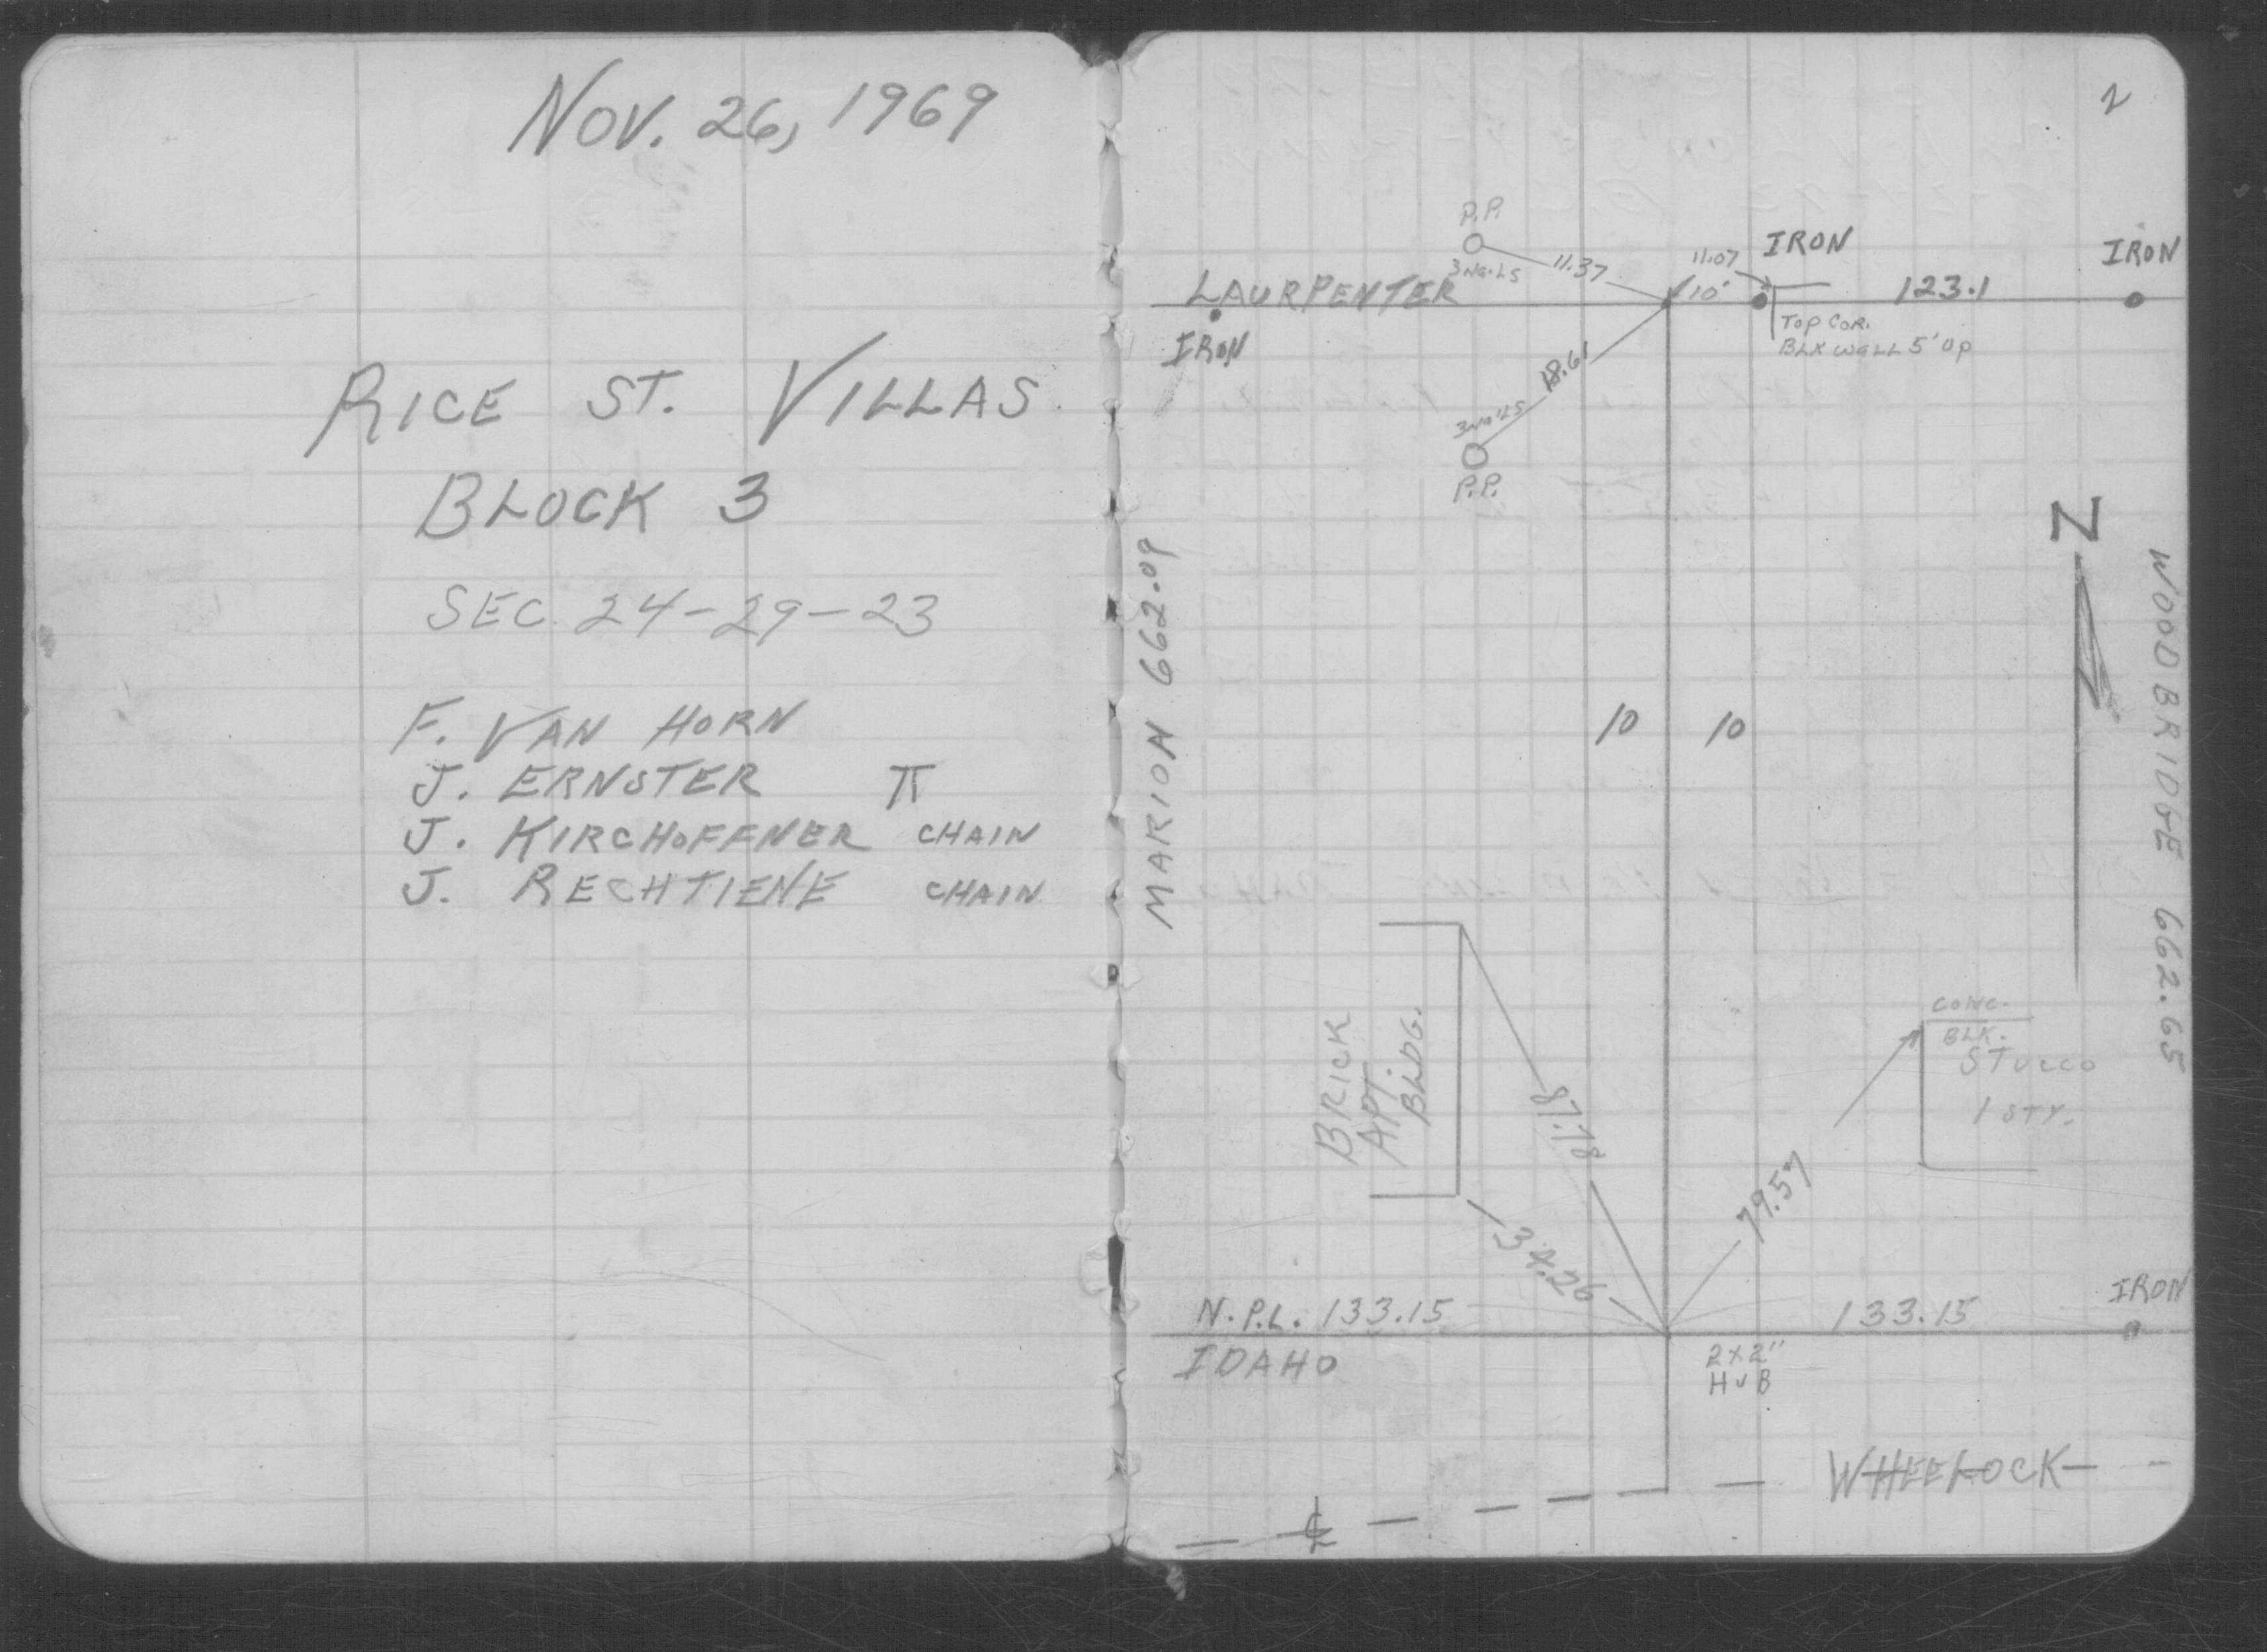 NOV. 26, 1969
RICE ST. VILLAS
BLOCK 3
SEC. 24-29-23
F. VAN HORN
J. ERNSTER π
J. KIRCHOFFNER CHAIN
J. RECHTIENE CHAIN
2
P.P.
3 NAILS
11.37
11.07
IRON
IRON
LAURPENTER
10'
123.1
IRON
TOP COR.
BLK WALL 5' UP
18.61
3 NAILS
P.P.
N
MARION 662.09
WOODBRIDGE 662.65
10 10
BRICK
APT.
BLDG.
87.18
CONC.
BLK.
STUCCO
1 STY.
79.57
134.26
N.P.L. 133.15
133.15
IRON
IDAHO
2x2"
HUB
WHEELOCK
℄